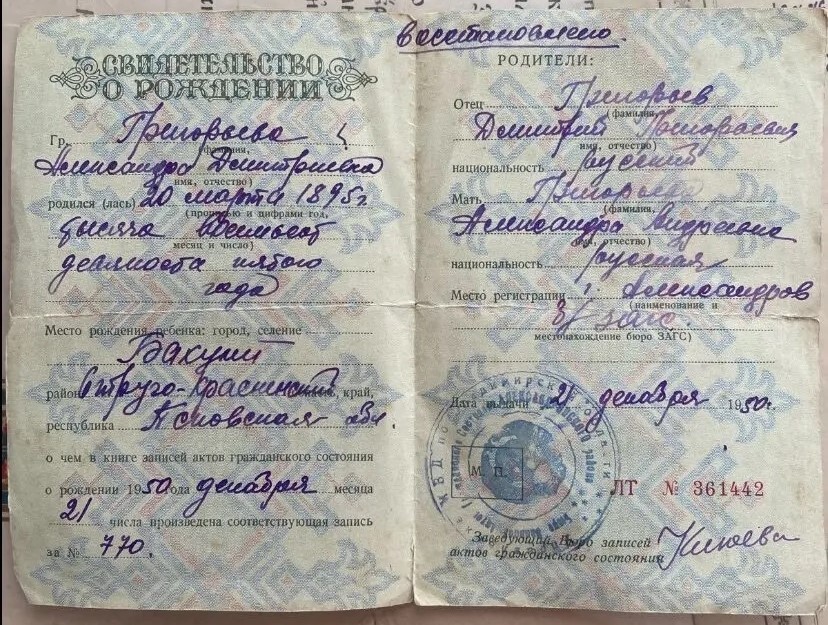 СВИДЕТЕЛЬСТВО
О РОЖДЕНИИ
Гр. Григорьева
(фамилия,
Александра Дмитриевна
имя, отчество)
родился (лась) 20 марта 1895 г
(прописью и цифрами год,
тысяча восемьсот
месяц и число)
девяноста пятого
года
Место рождения ребенка: город, селение
район Струго-Красненский край,
республика Псковская обл.
о чем в книге записей актов гражданского состояния
о рождении 1950 года декабря месяца
21 числа произведена соответствующая запись
за № 770.
Восстановлено.
РОДИТЕЛИ:
Отец Григорьев
(фамилия,
Дмитрий Григорьевич
имя, отчество)
национальность русский
Мать Григорьева
(фамилия,
Александра Андреевна
имя, отчество)
национальность русская
Место регистрации г. Александров
(наименование и
ЗАГС.
местонахождение бюро ЗАГС)
Дата выдачи 21 декабря 1950 г.
М. П.
ЛТ № 361442
Заведующий Бюро записей
актов гражданского состояния